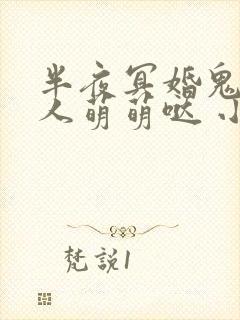 半夜冥婚鬼
人萌萌哒 小
梵説1